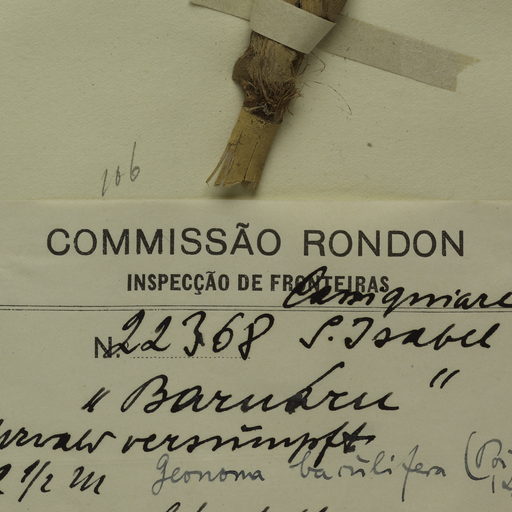 106
COMMISSÃO RONDON
INSPECÇÃO DE FRONTEIRAS
Casiquiare
N. 22368 S. Isabel
"Baruáru"
versumpft
2 1/2 m Geonoma baculifera (Poi